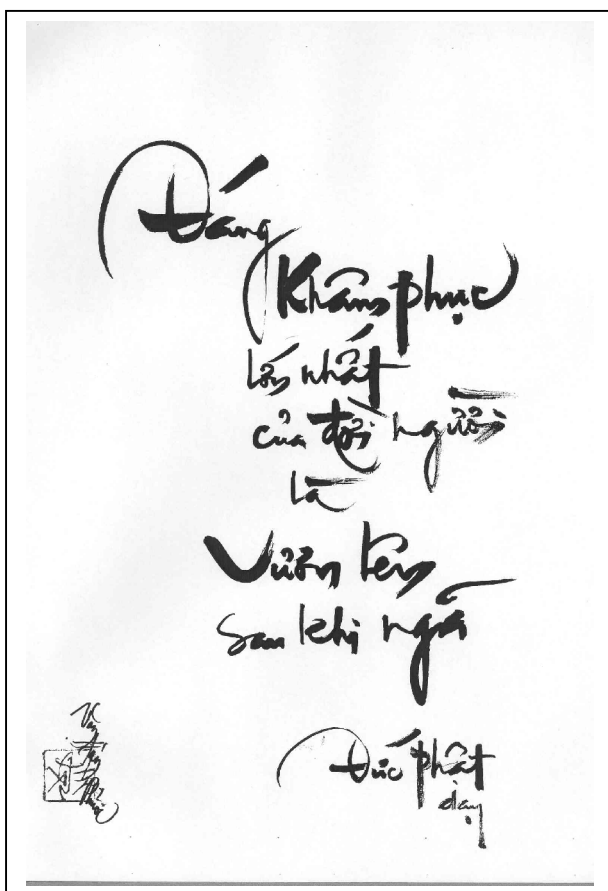 Đáng
Khâm phục
lớn nhất
của đời người
là
Vươn lên
sau khi ngã
Đức phật
dạy